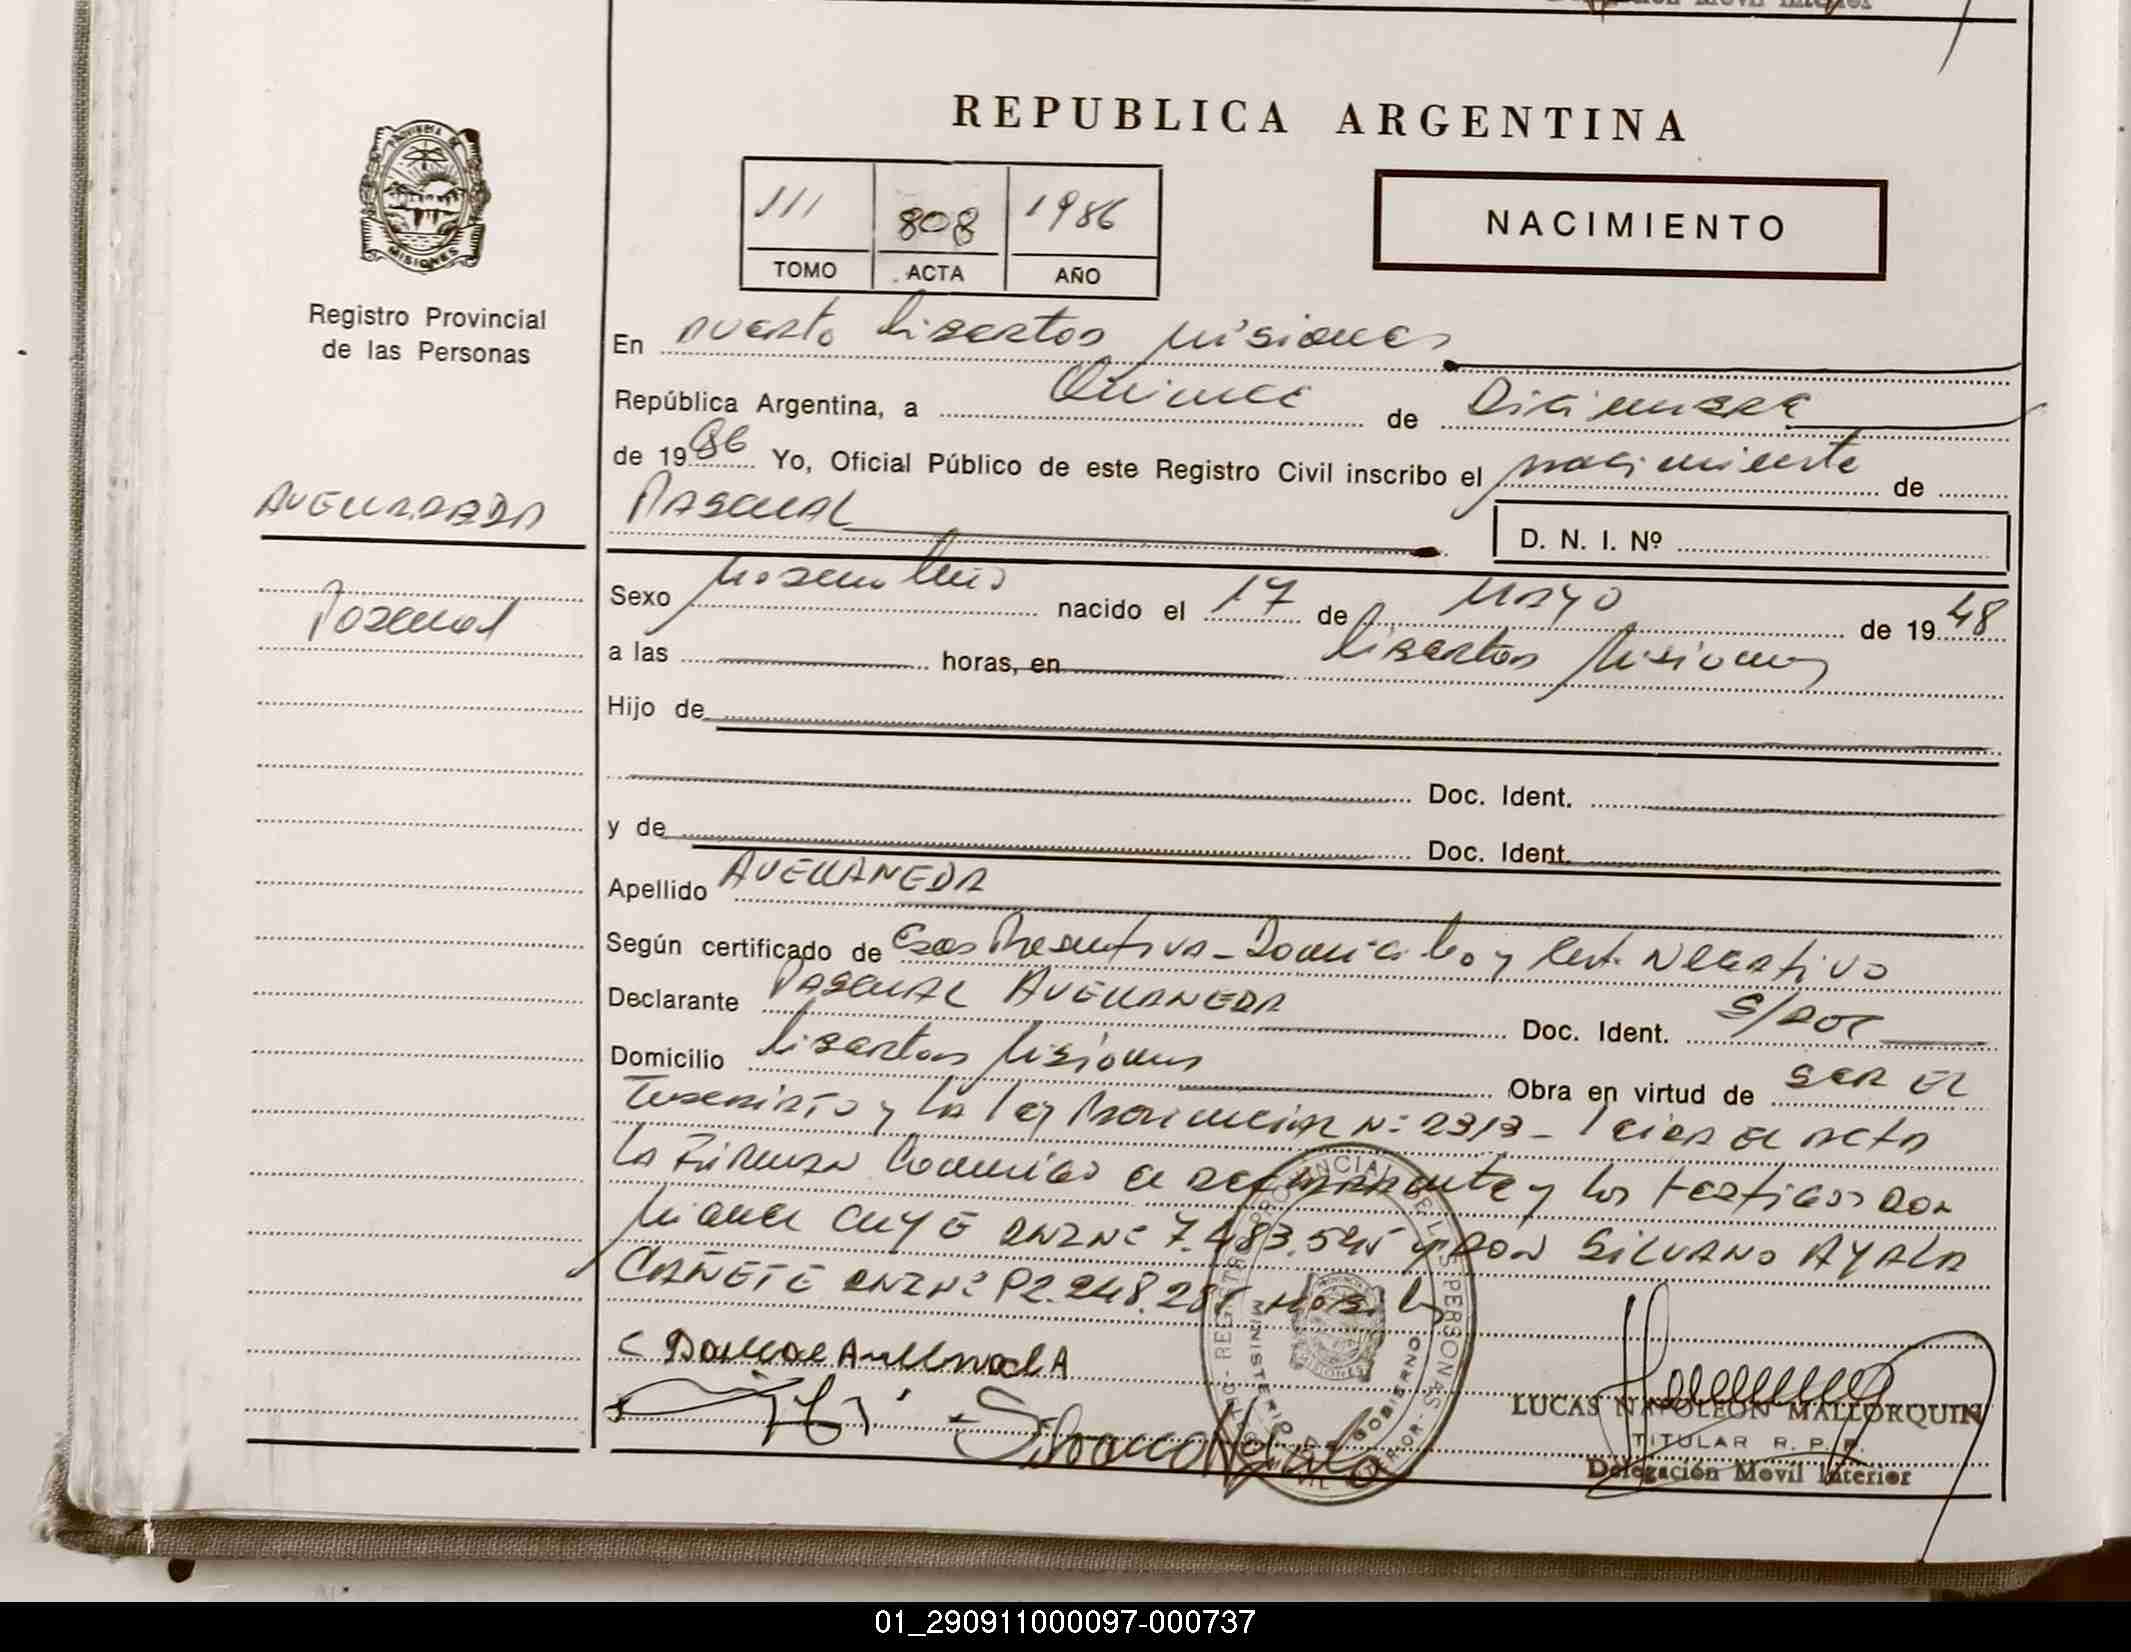 REPUBLICA ARGENTINA
PROVINCIA DE
MISIONES
Registro Provincial
de las Personas
III 808 1986
TOMO ACTA AÑO
NACIMIENTO
En Puerto Libertad Misiones
República Argentina, a Quince de Diciembre
de 1986 Yo, Oficial Público de este Registro Civil inscribo el nacimiento de
PASCUAL
D. N. I. Nº
AVELLANEDA
Pascual
Sexo Masculino nacido el 17 de Mayo de 1948
a las horas, en Libertad Misiones
Hijo de
Doc. Ident.
y de Doc. Ident.
Apellido AVELLANEDA
Según certificado de Edad Presuntiva - Domicilio y Cert. Negativo
Declarante PASCUAL AVELLANEDA Doc. Ident. S/DOC
Domicilio Libertad Misiones Obra en virtud de SER EL
Inscripto y la ley Provincial Nº 2313 - leida el acta
la Firman Conmigo el declarante y los testigos Don
Miguel CUYE DNI Nº 7.483.545 y DON SILVANO AYALA
CAÑETE DNI Nº 92.248.28
Silvano Ayala
REGISTRO PROVINCIAL DE LAS PERSONAS
MINISTERIO DE GOBIERNO
MISIONES
LUCAS NAPOLEON MALLORQUIN
TITULAR R. P. P.
Delegación Movil Interior
01_290911000097-000737